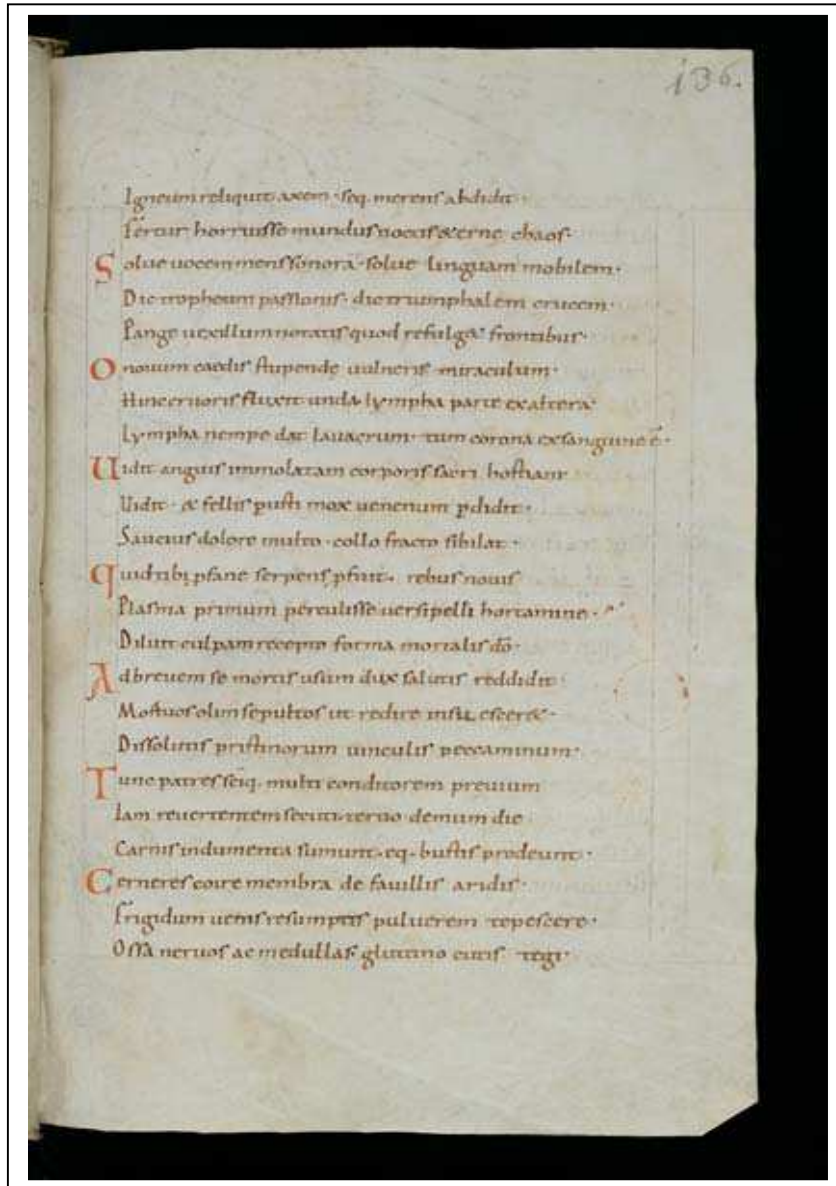 136.
Igneum reliquit axem · seq. merens abdidit ·
Fertur horruisse mundus noctis & erne chaos ·
Solue uocem mens sonora · solue linguam mobilem ·
Dic tropheum passionis · dic triumphalem crucem ·
Pange uexillum notatis quod refulg& frontibus ·
O nouum caedis stupende uulneris miraculum ·
Hinc cruoris fluxit unda lympha parte exaltera
Lympha nempe dat lauacrum · tum corona exsanguine ē ·
Uidit anguis immolatam corporis sacri hostiam
Uidit · & fellis pusti mox uenenum pdidit ·
Saucius dolore multo · collo fracto sibilat ·
Quid tibi pfane serpens pfuit · rebus nouis
Plasma primum perculisse uersipelli hortamine ·
Diluit culpam recepto forma mortalis dō ·
Ad breuem se mortis usum dux salutis reddidit
Mortuos olim sepultos ut redire
Dissolutis pristinorum uinculis peccaminum ·
Tunc patres scīq. multi conditorem preuium
Iam reuertentem secuti · tertio demum die
Carnis indumenta sumunt · eq. bustis prodeunt ·
Cerneres coire membra de fauillis aridis ·
Frigidum uenis resumptis puluerem tepescere ·
Ossa neruos ac medullas glutino cutis tegi ·